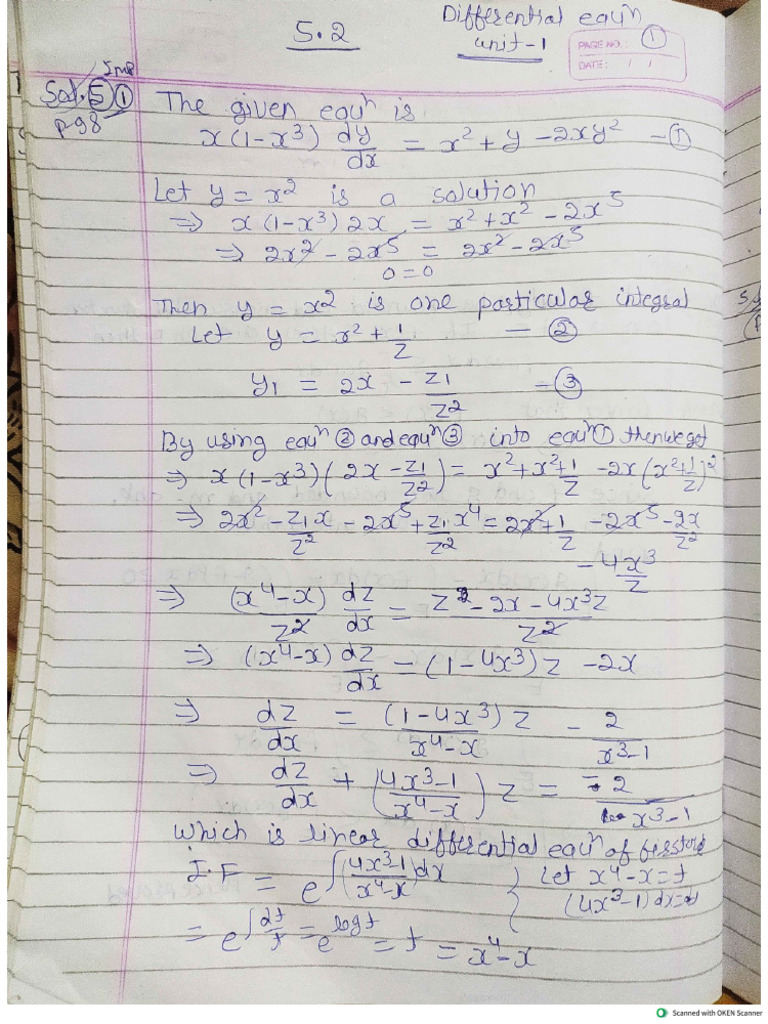 Differential equⁿ
5.2
unit-1
PAGE NO.: 1
DATE: / /
Imp
Sol. 5 ①
P-98
The given equⁿ is
x(1-x³) dy/dx = x² + y - 2xy² - ①
Let y = x² is a solution
⇒ x(1-x³) 2x = x² + x² - 2x⁵
⇒ 2x² - 2x⁵ = 2x² - 2x⁵
0 = 0
Then y = x² is one particular integral
Let y = x² + 1/z - ②
y₁ = 2x - z₁/z² - ③
By using equⁿ ② and equⁿ ③ into equⁿ ① then we get
⇒ x(1-x³)(2x - z₁/z²) = x² + x² + 1/z - 2x(x² + 1/z)²
⇒ 2x² - z₁x/z² - 2x⁵ + z₁x⁴/z² = 2x² + 1/z - 2x⁵ - 2x/z²
- 4x³/z
⇒ (x⁴-x)/z² dz/dx = z - 2x - 4x³z/z²
⇒ (x⁴-x) dz/dx = (1-4x³)z - 2x
⇒ dz/dx = (1-4x³)z/x⁴-x - 2/x³-1
⇒ dz/dx + (4x³-1/x⁴-x) z = -2/x³-1
which is linear differential equⁿ of
I.F = e^∫(4x³-1/x⁴-x)dx { Let x⁴-x = t
(4x³-1)dx = dt
= e^∫dt/t = e^logt = t = x⁴-x
Scanned with OKEN Scanner